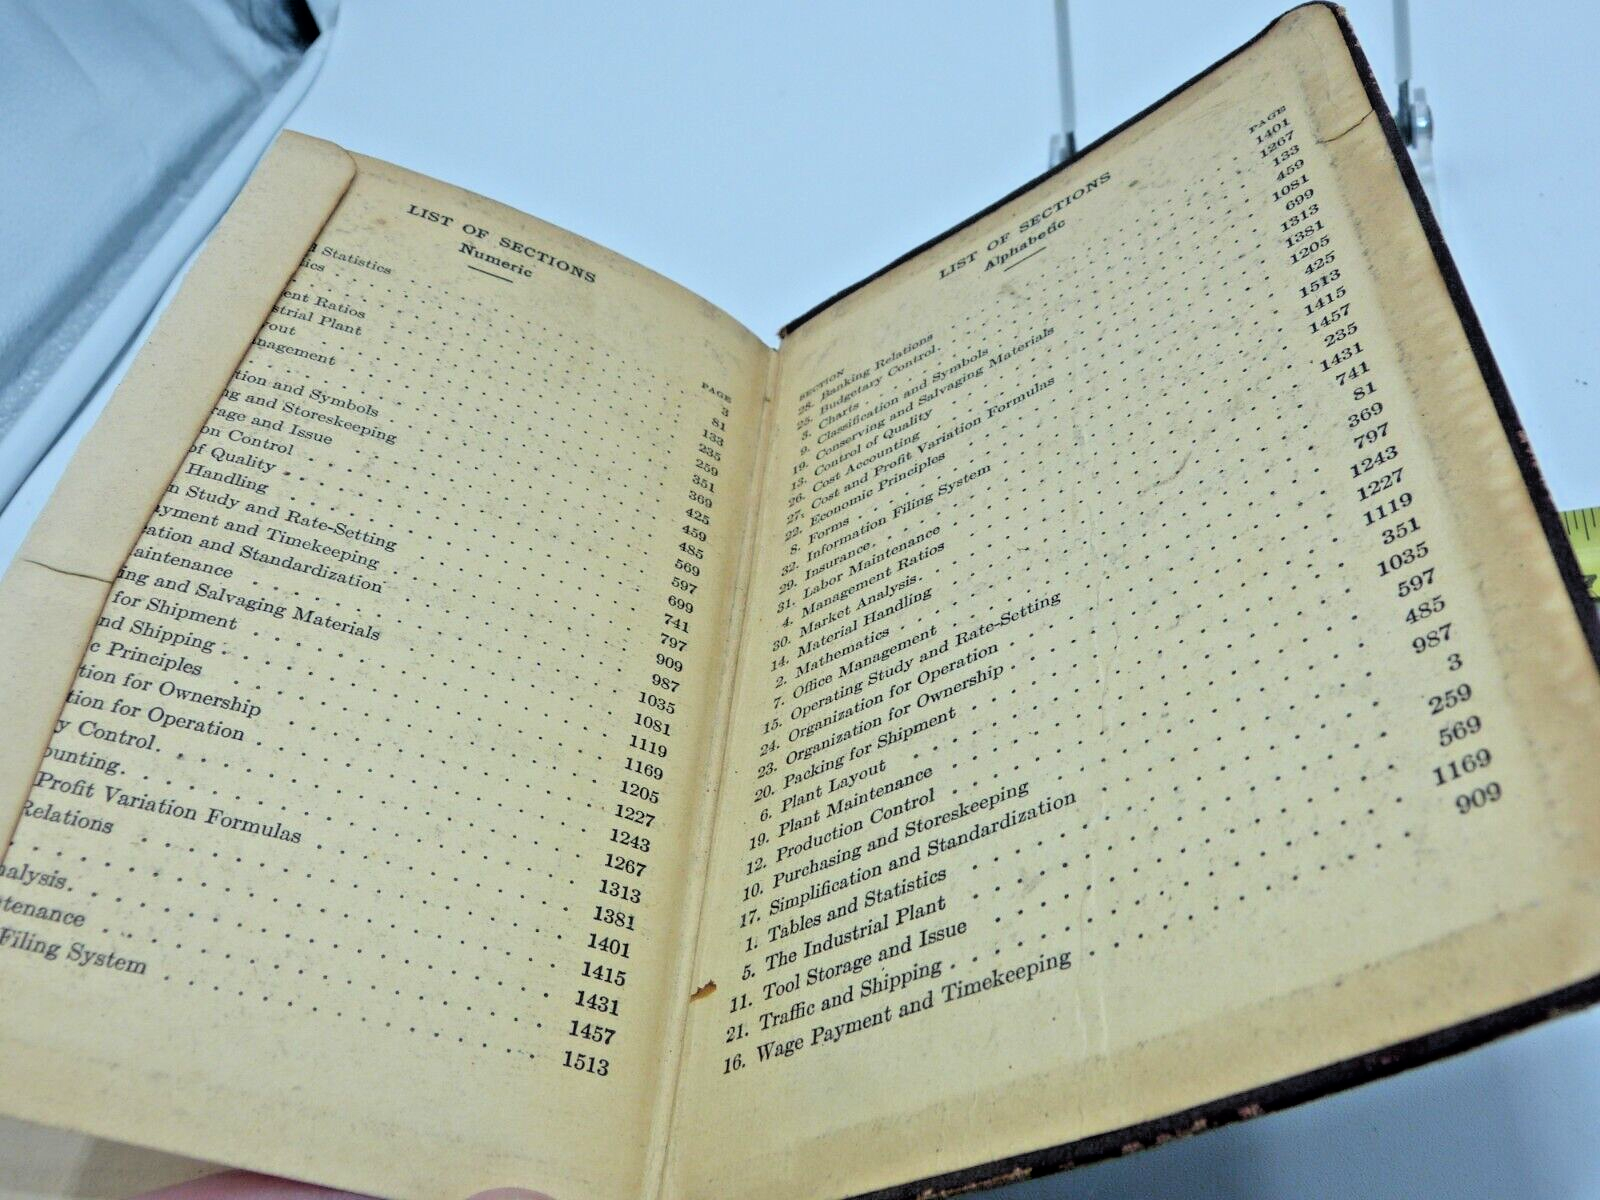 LIST OF SECTIONS
Numeric
PAGE
Statistics 3
ics 81
133
ent Ratios 235
strial Plant 259
yout 351
nagement 369
425
tion and Symbols 459
ng and Storeskeeping 485
rage and Issue 569
on Control 597
of Quality 699
Handling 741
n Study and Rate-Setting 797
ayment and Timekeeping 909
ation and Standardization 987
aintenance 1035
ing and Salvaging Materials 1081
for Shipment 1119
nd Shipping 1169
c Principles 1205
tion for Ownership 1227
tion for Operation 1243
y Control 1267
ounting 1313
Profit Variation Formulas 1381
Relations 1401
1415
nalysis 1431
tenance 1457
Filing System 1513
LIST OF SECTIONS
Alphabetic
SECTION PAGE
28. Banking Relations 1401
25. Budgetary Control 1267
3. Charts 133
9. Classification and Symbols 459
19. Conserving and Salvaging Materials 1081
13. Control of Quality 699
26. Cost Accounting 1313
27. Cost and Profit Variation Formulas 1381
22. Economic Principles 1205
8. Forms 425
32. Information Filing System 1513
29. Insurance 1415
31. Labor Maintenance 1457
4. Management Ratios 235
30. Market Analysis 1431
14. Material Handling 741
2. Mathematics 81
7. Office Management 369
15. Operating Study and Rate-Setting 797
24. Organization for Operation 1243
23. Organization for Ownership 1227
20. Packing for Shipment 1119
6. Plant Layout 351
19. Plant Maintenance 1035
12. Production Control 597
10. Purchasing and Storeskeeping 485
17. Simplification and Standardization 987
1. Tables and Statistics 3
5. The Industrial Plant 259
11. Tool Storage and Issue 569
21. Traffic and Shipping 1169
16. Wage Payment and Timekeeping 909